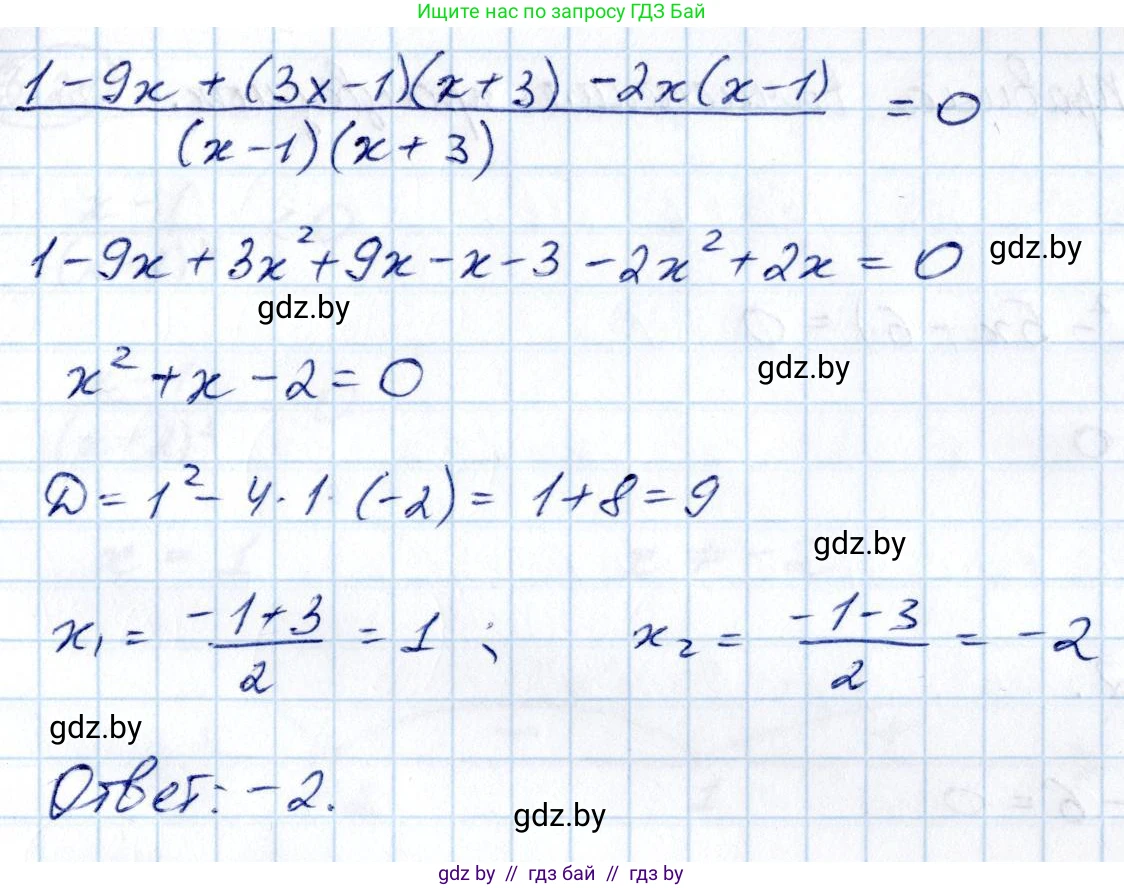 Ищите нас по запросу ГДЗ Бай
1 - 9x + (3x - 1)(x + 3) - 2x(x - 1)
(x - 1)(x + 3)
= 0
1 - 9x + 3x² + 9x - x - 3 - 2x² + 2x = 0
gdz.by
gdz.by
x² + x - 2 = 0
gdz.by
D = 1² - 4 · 1 · (-2) = 1 + 8 = 9
gdz.by
x₁ = (-1 + 3)/2 = 1 ; x₂ = (-1 - 3)/2 = -2
gdz.by
Ответ: -2.
gdz.by
gdz.by // гдз бай // гдз by